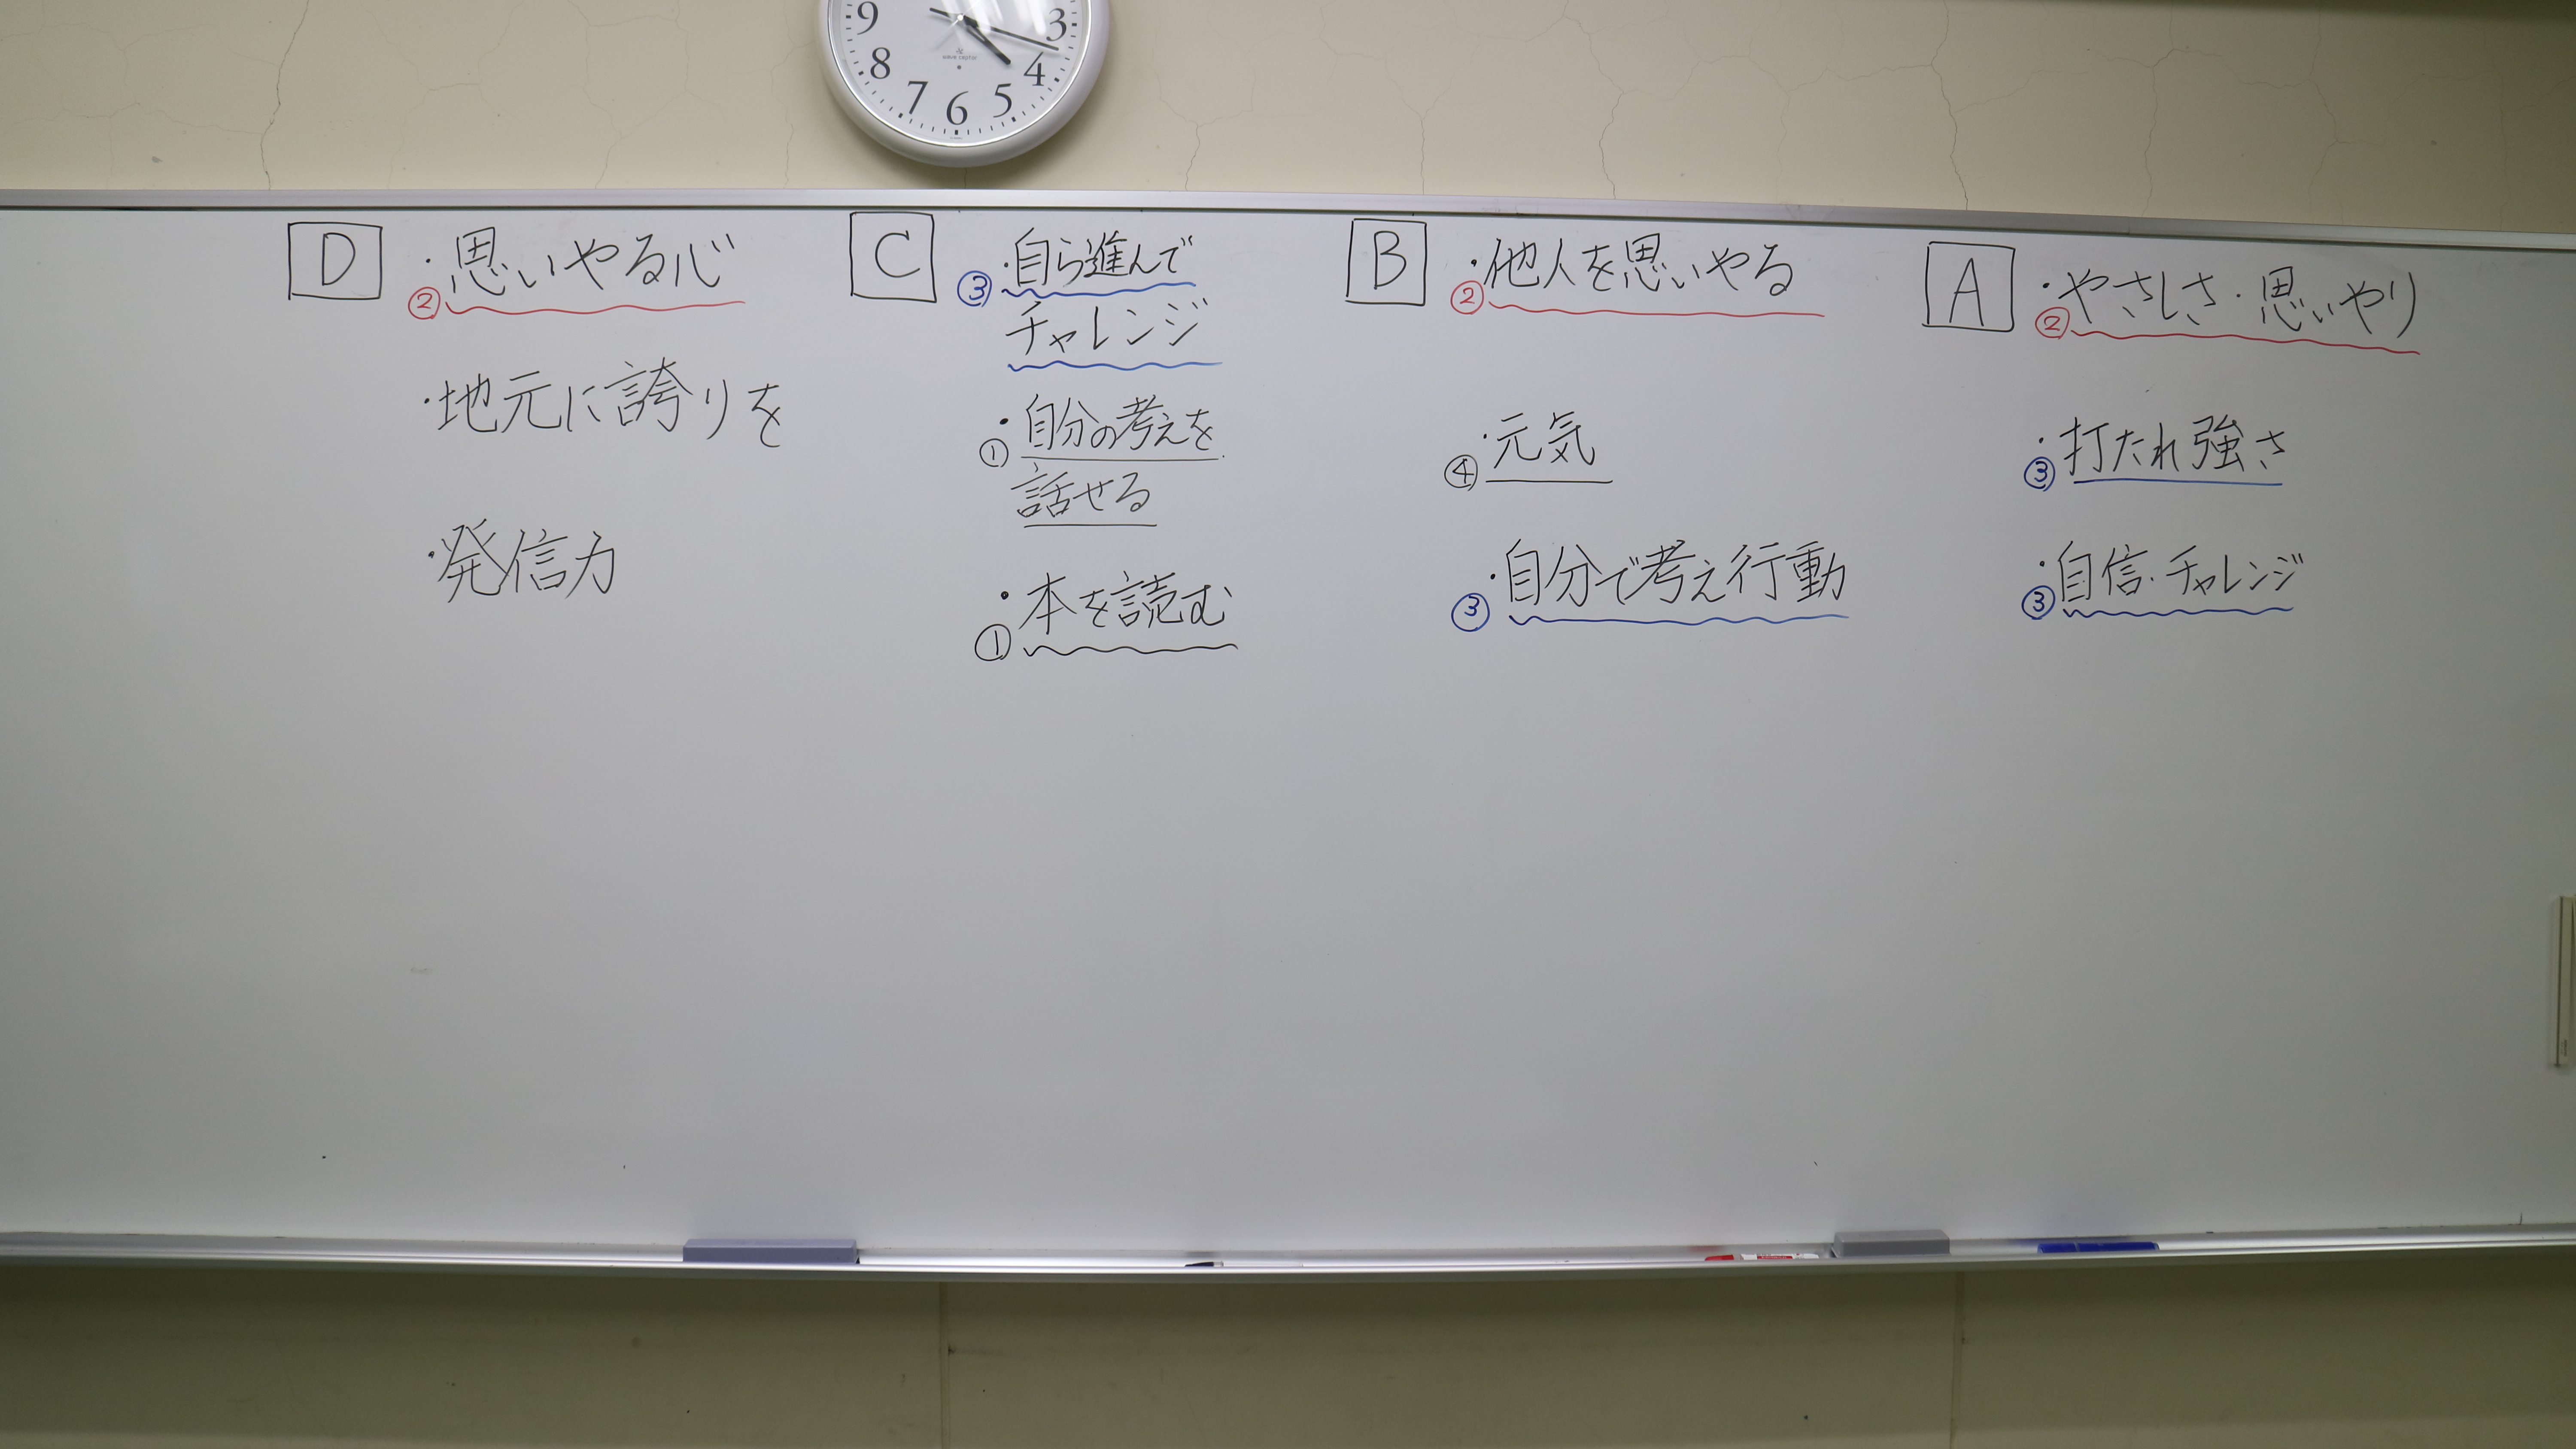 9
3
8
4
7
5
6
D
・思いやる心
②
・地元に誇りを
・発信力
C
・自ら進んで
③
チャレンジ
・自分の考えを
①
話せる
・本を読む
①
B
・他人を思いやる
②
・元気
④
・自分で考え行動
③
A
・やさしさ・思いやり
②
・打たれ強さ
③
・自信・チャレンジ
③